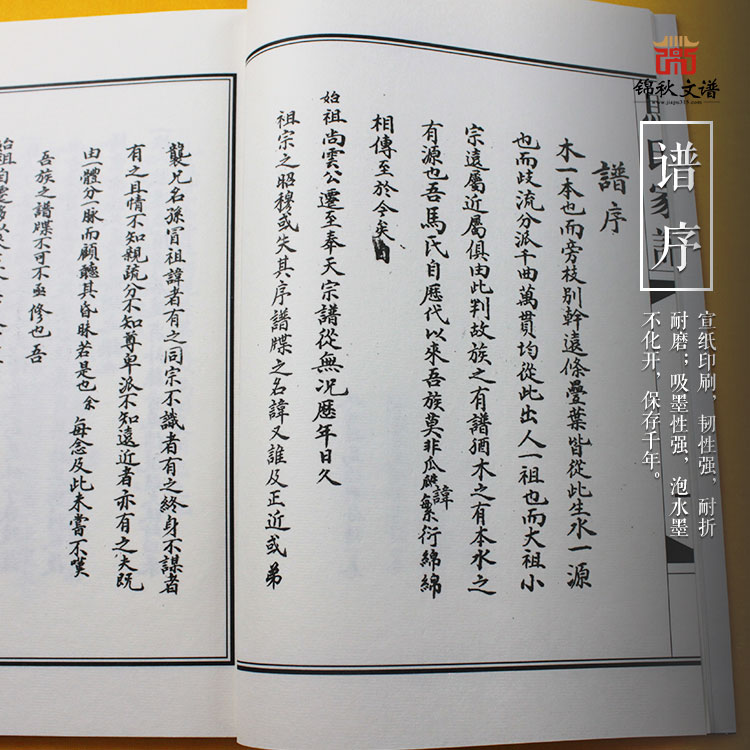 锦秋文谱
www.jiapu315.com
谱序
宣纸印刷，韧性强，耐折
耐磨；吸墨性强，泡水墨
不化开，保存千年。
氏家譜
譜序
木一本也而旁枝別幹遠條疊葉皆從此生水一源
也而歧流分派千曲萬貫均從此出人一祖也而大祖小
宗遠屬近屬俱由此判故族之有譜猶木之有本水之
有源也吾馬氏自歷代以來吾族莫非瓜瓞繁衍綿綿
諱
相傳至於今矣
始祖尚雲公遷至奉天宗譜從無況歷年日久
祖宗之昭穆或失其序譜牒之名諱又誰及正近或弟
襲兄名孫冒祖諱者有之同宗不識者有之終身不謀者
有之且情不知親疏分不知尊卑派不知遠近者亦有之夫既
由一體分一脉而顧聽其昏昧若是也余每念及此未嘗不嘆
吾族之譜牒不可不亟修也吾
始祖